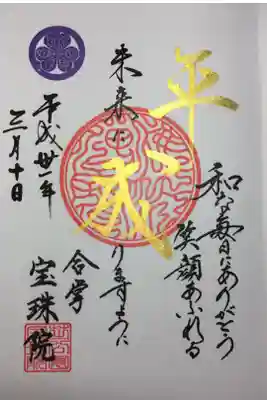 平成
和な毎日にありがとう
笑顔あふれる
未来に
りますように
合掌
宝珠院
平成卅一年
三月十日